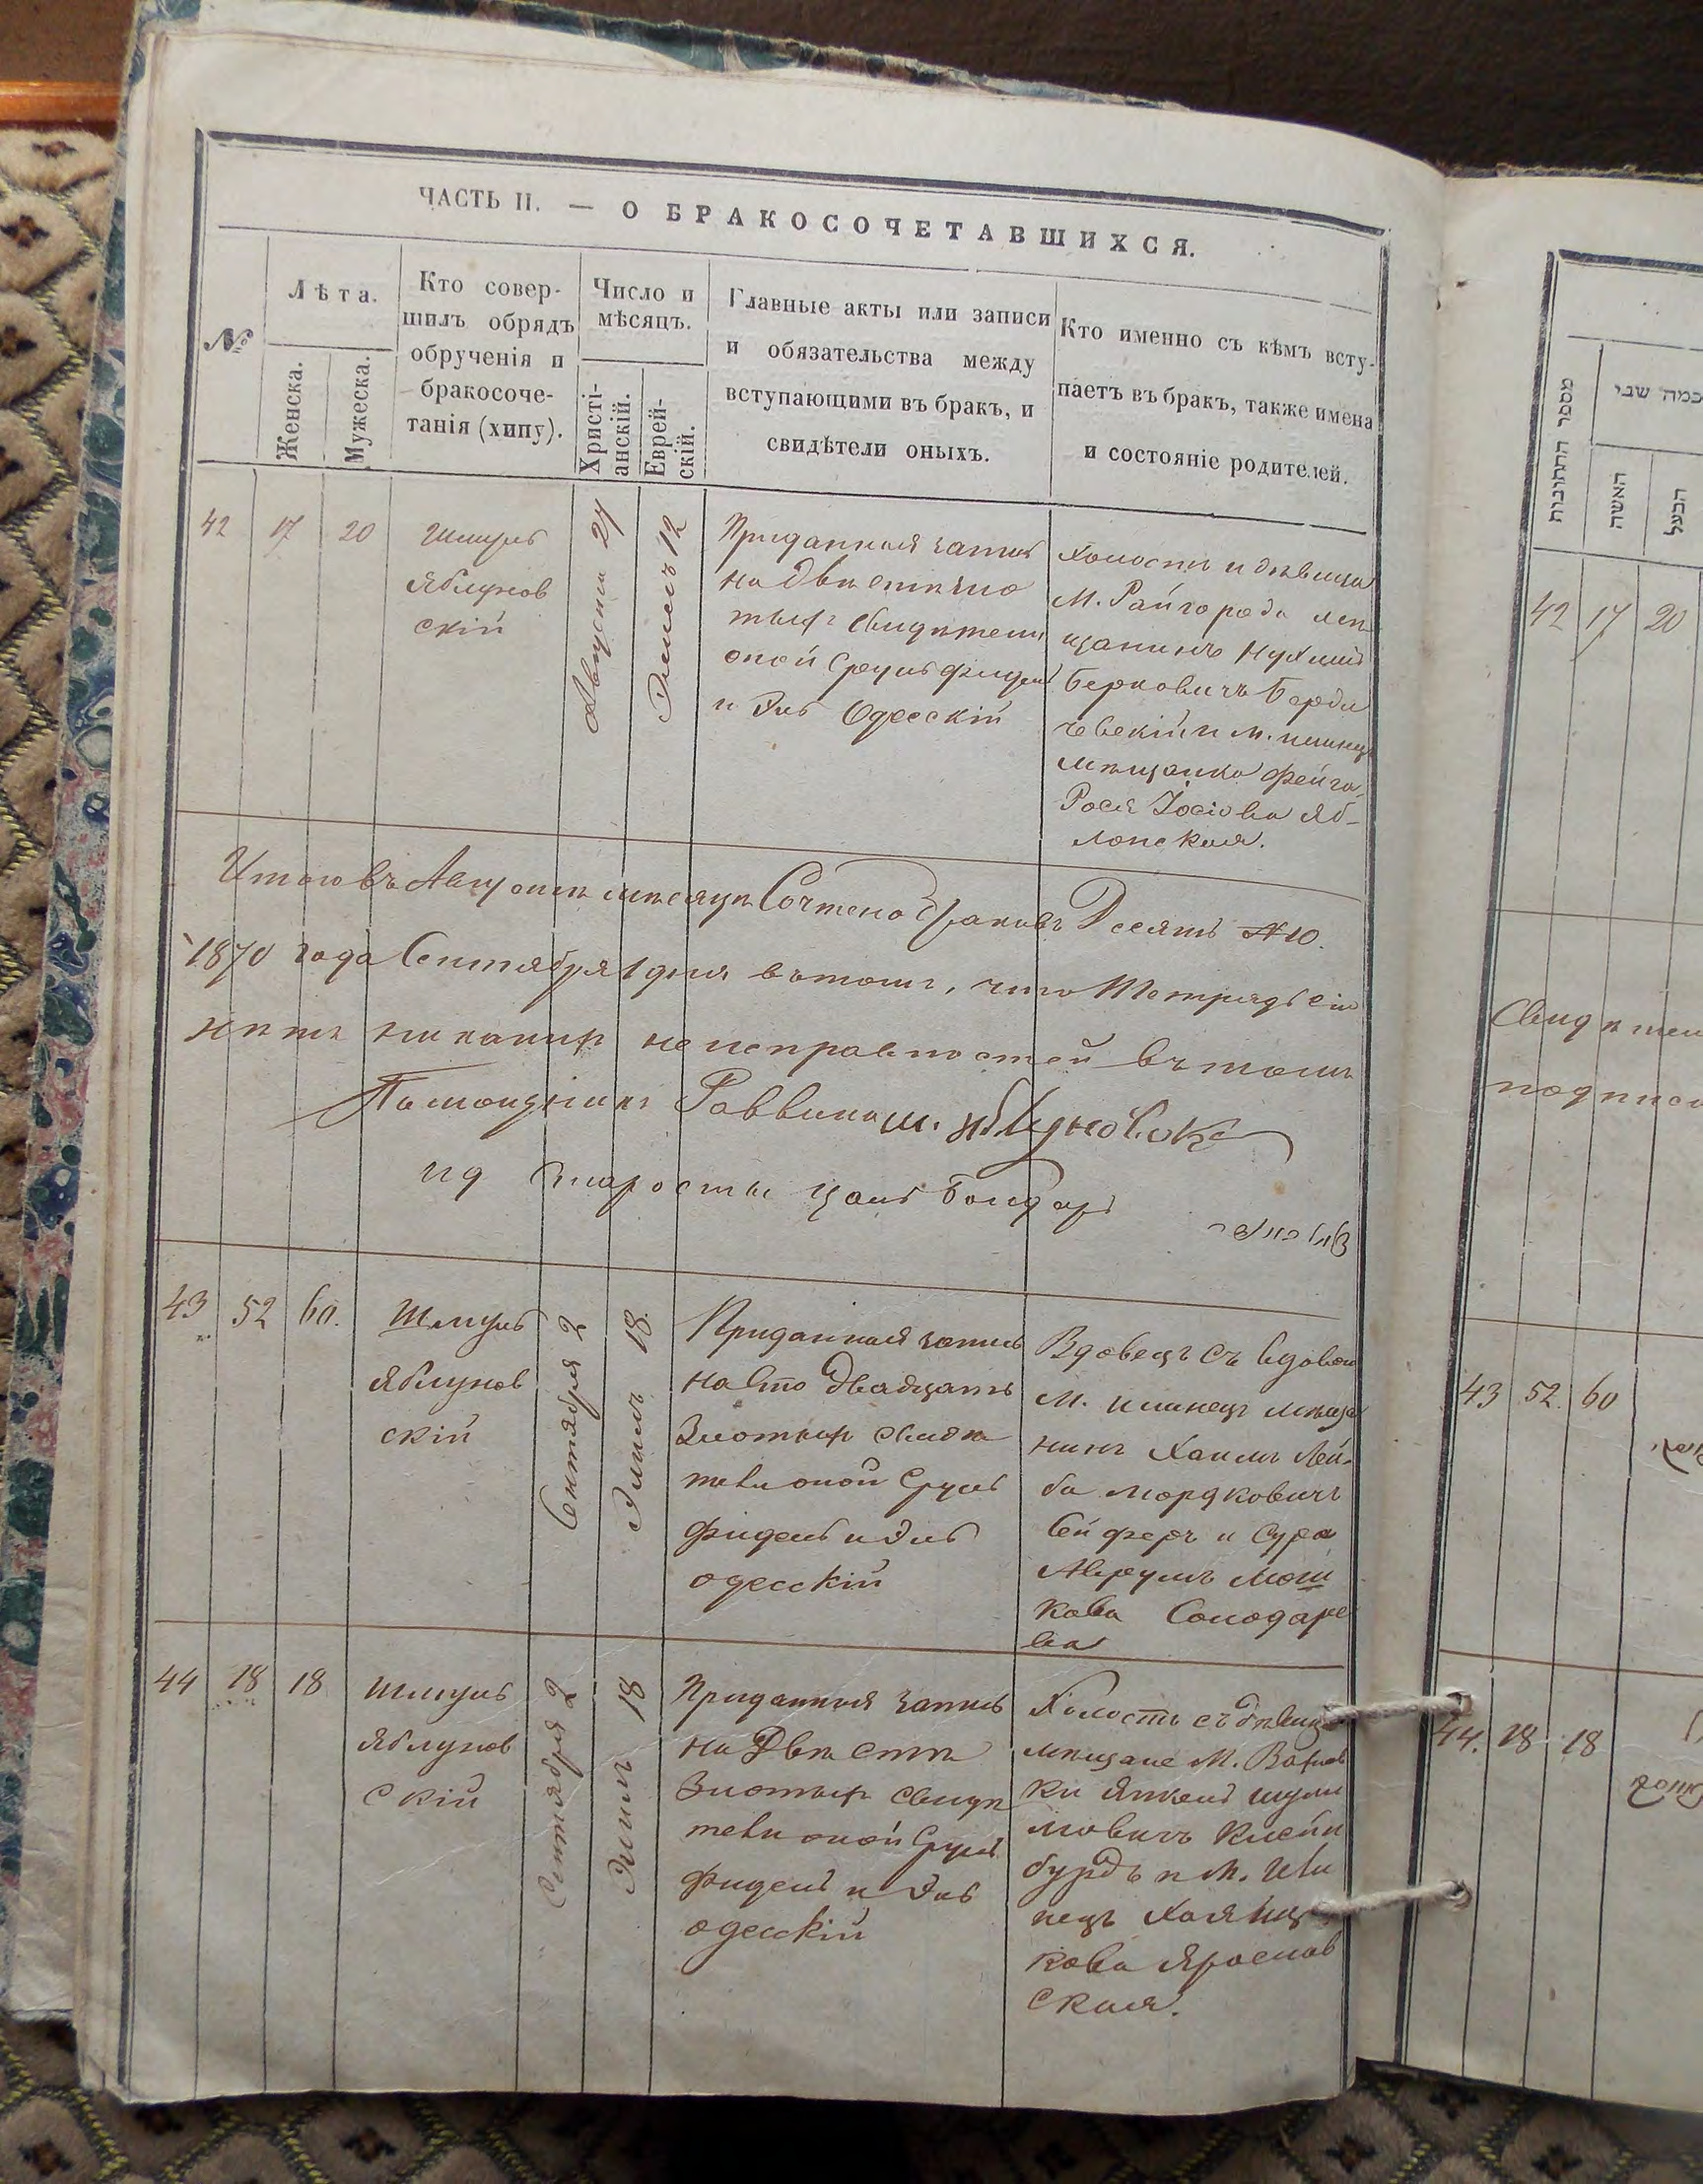 ЧАСТЬ II. — О БРАКОСОЧЕТАВШИХСЯ.
№
Лѣта.
Женска.
Мужеска.
Кто совер-
шилъ обрядъ
обрученія и
бракосоче-
танія (хипу).
Число и
мѣсяцъ.
Христі-
анскій.
Еврей-
скій.
Главные акты или записи
и обязательства между
вступающими въ бракъ, и
свидѣтели оныхъ.
Кто именно съ кѣмъ всту-
паетъ въ бракъ, также имена
и состояніе родителей.
42 17 20
Шмуль
Яблунов
скій
Августа
Элюлъ 12
Приданная запись
на двѣсти зло
тыхъ свидѣтели
оной Сруль Фидель
и Эль Одесскій
Холостъ и дѣвица
М. Райгорода мѣ
щанинъ Нухимъ
Берковичъ Берди
чевскій и м.
мѣщанка Фейга
Рося Іосіова Яб-
лонская.
Итого въ Августѣ мѣсяцѣ Сочтено браковъ Десять №10.
1870 года Сентября 1 дня въ томъ, что Тетрадѣ сіи
нѣтъ никакихъ неисправностей въ томъ
Помощникъ Раввина Ш. Яблуновскі
ид Старосты Цаль Бондарь
43 52 60.
Шмуль
Яблунов
скій
Сентября 2
Элюлъ 18.
Приданная запись
на Сто двадцать
Злотыхъ свидѣ
тели оной Сруль
Фидель и Эль
одесскій
Вдовецъ съ вдовою
М. Илинецъ мѣща
нинъ Хаимъ Лей-
ба Мордковичъ
Сейферъ и Сура
Мош
кова Солодаре
ва
44 18 18
Шмуль
Яблунов
скій
Сентября 2
Элюлъ 18
Приданная запись
на Двѣсти
Злотыхъ свидѣ
тели оной Сруль
Фидель и Эль
одесскій
Холостъ съ дѣвицею
мѣщане М. Вахнов
ки Янкель Шули
мовичъ Клейн
бурдъ и М. Или
нецъ Хая Иц
кова Ярослав
ская.
מספר החתונות
כמה שני
האשה
הבעל
42 17 20
Свидѣтели
подписи
43 52 60
44. 18 18